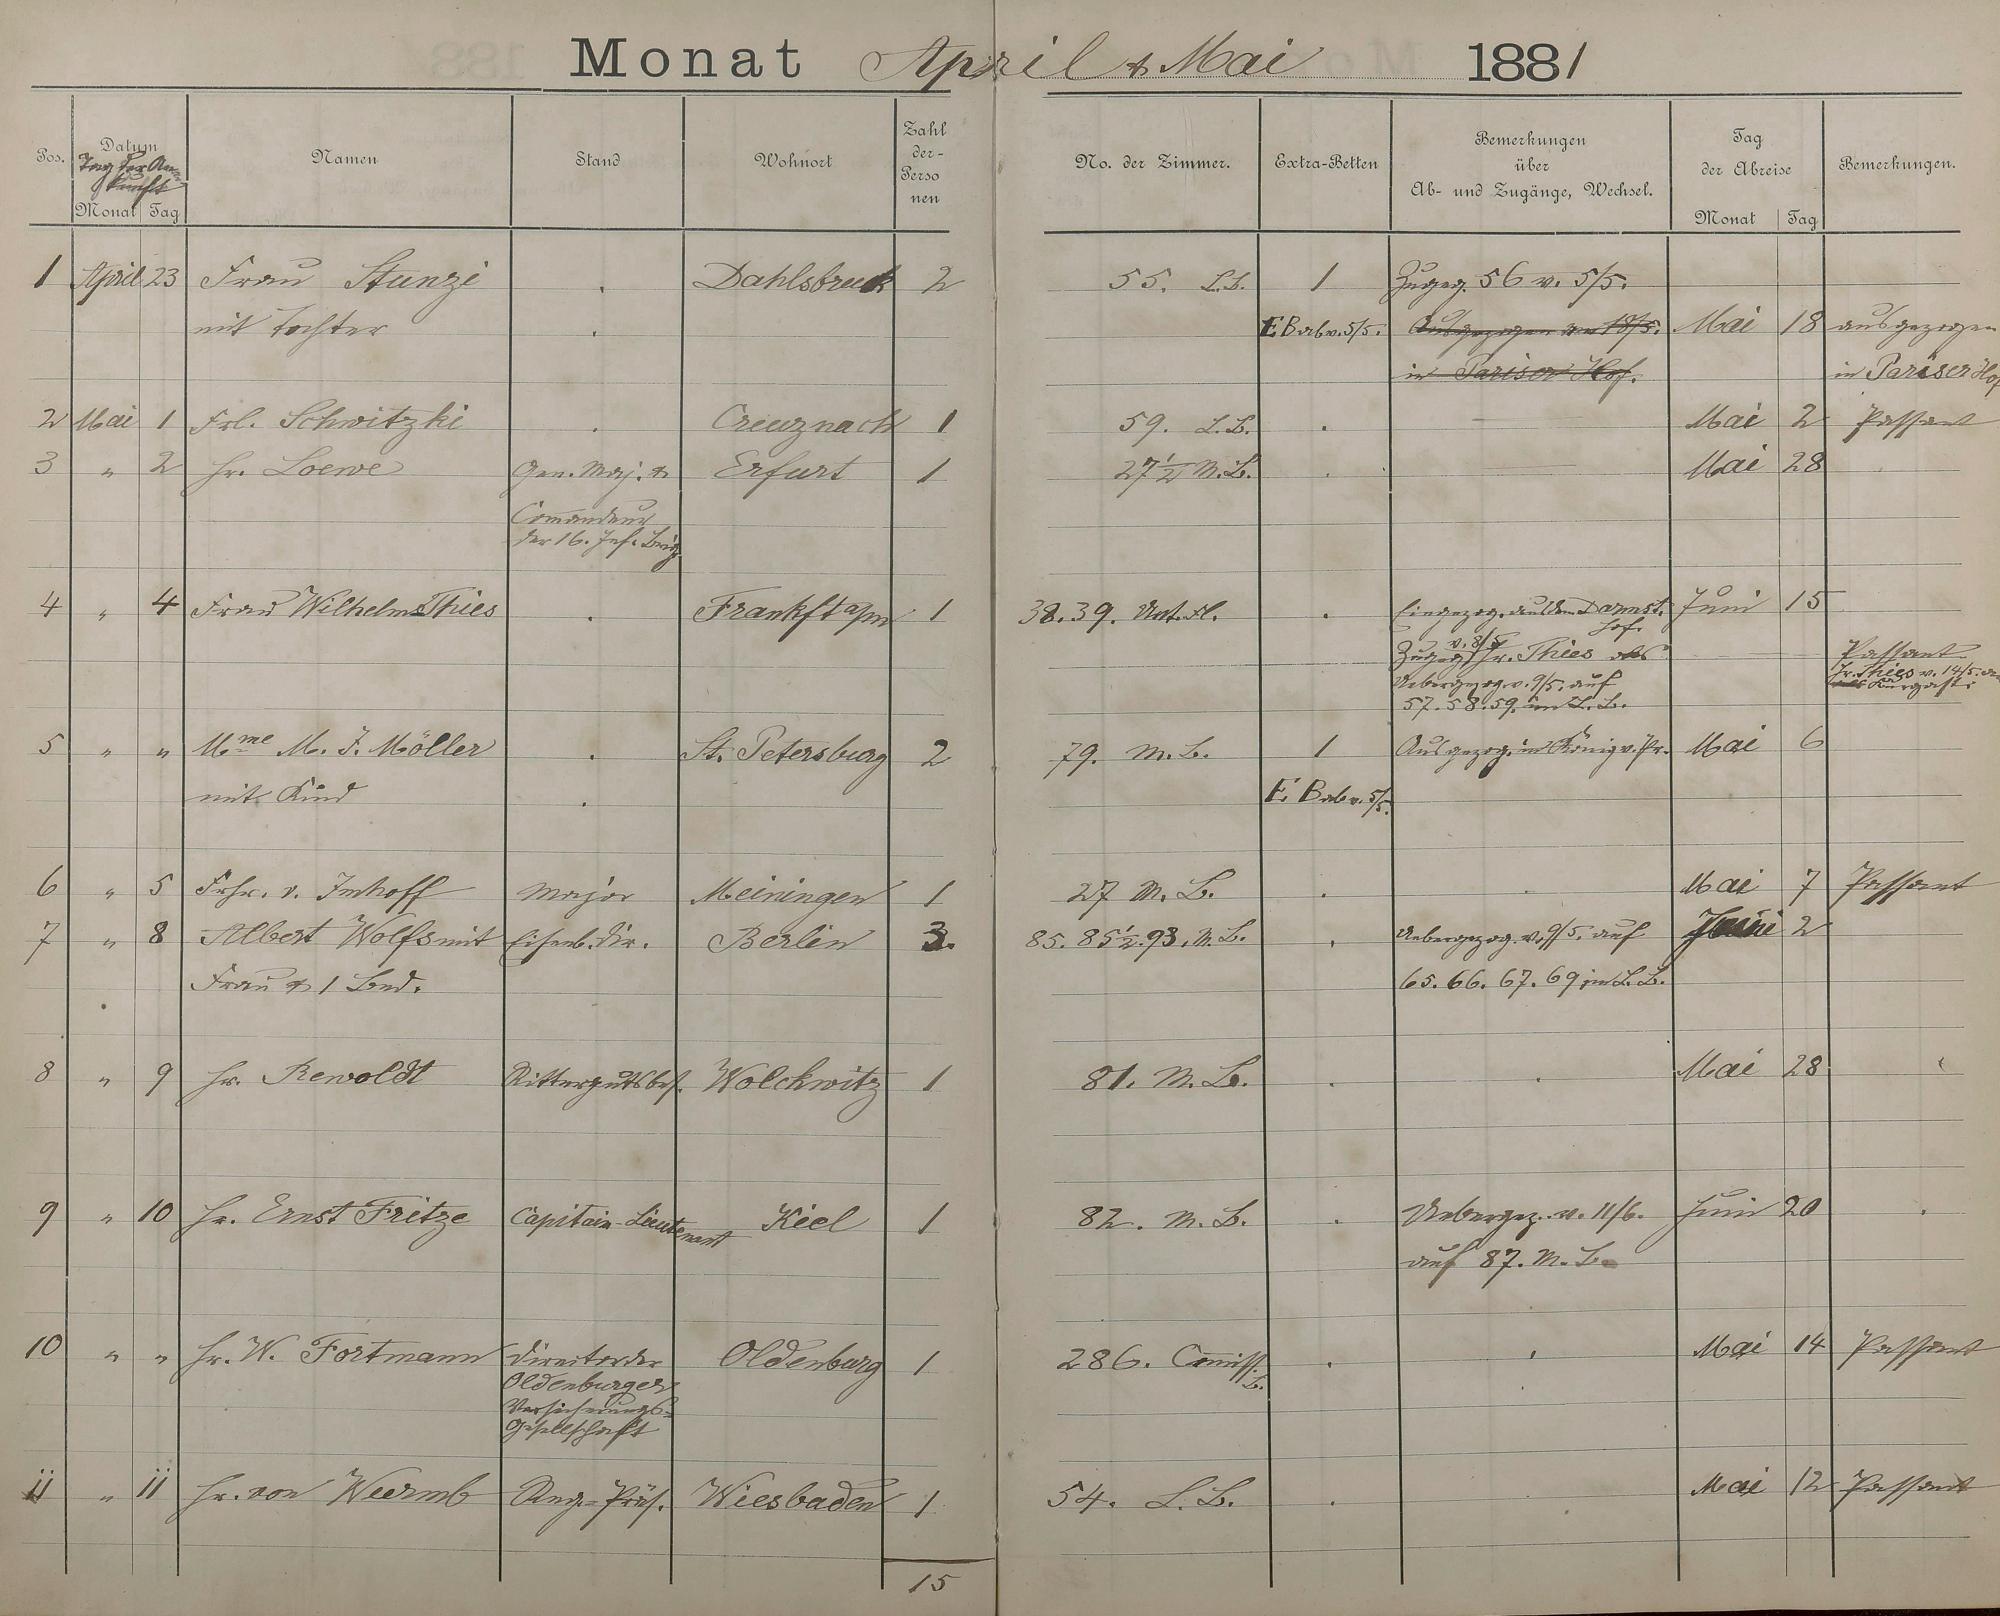 Monat April & Mai 1881
Pos.
Datum
Tag der An-
kunft
Monat Tag
Namen
Stand
Wohnort
Zahl
der-
Perso
nen
No. der Zimmer.
Extra-Betten
Bemerkungen
über
Ab- und Zugänge, Wechsel.
Tag
der Abreise
Monat Tag
Bemerkungen.
1 April 23 Frau Stunzi . Dahlsbruck 2 55. L.B. 1 Zugeg. 56 v. 5/5.
mit Tochter . E Bab v. 5/5. Ausgezogen am 18/5. Mai 18 ausgezogen
in Pariser Hof. in Pariser Hof
2 Mai 1 Frl. Schwitzki . Creuznach 1 59. L.B. . — Mai 2 Passant
3 " 2 Hr. Loewe Gen. Maj. & Erfurt 1 27 1/2 M.B. . Mai 28
Comandeur
der 16. Inf. Brig.
4 " 4 Frau Wilhelm Thies . Frankft a/m 1 38.39. Unt. Al. . Eingezog. aus dem Darmst. Juni 15
Hof.
v. 8/5
Zugeg. Hr. Thies als Passant
Uebergezog. v. 9/5. auf Hr. Thies v. 14/5. an
57.58.59. im L.B. als Kurgast.
5 " " Mme M. J. Möller . St. Petersburg 2 79. M.B. 1 Ausgezog. im König v. Pr. Mai 6
mit Kind . E. Bab v. 5/5.
6 " 5 Frhr. v. Imhoff Major Meiningen 1 27 M.B. . . Mai 7 Passant
7 " 8 Albert Wolfs mit Eisenb. Dir. Berlin 3. 85. 85 1/2. 93. M.B. . Uebergezog. v. 9/5. auf Juni 2
Frau & 1 Bed. 65. 66. 67. 69 im L.B.
8 " 9 Hr. Rewoldt Rittergutsbes. Wolckwitz 1 81. M.B. . . Mai 28
9 " 10 Hr. Ernst Fritze Capitain-Lieutenant Kiel 1 82. M.B. . Uebergez. v. 11/6. Juni 20 .
auf 87. M.B.
10 " " Hr. W. Fortmann Director der Oldenburg 1 286. Comiss. . . Mai 14 Passant
B.
Oldenburger
Versicherungs-
Gesellschaft
11 " 11 Hr. von Wurmb Reg.-Präs. Wiesbaden 1 54. L.B. . . Mai 12 Passant
15